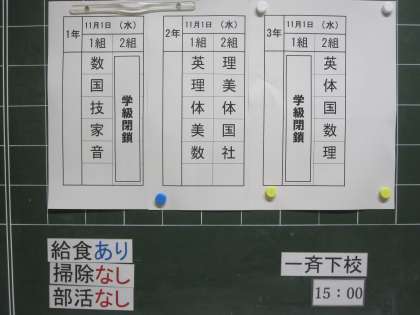 1年
11月1日 （水）
1組 2組
数
国
技
家
音
学級閉鎖
2年
11月1日 （水）
1組 2組
英 理
理 美
体 体
美 国
数 社
3年
11月1日 （水）
1組 2組
学級閉鎖
英
体
国
数
理
給食あり
掃除なし
部活なし
一斉下校
15：00